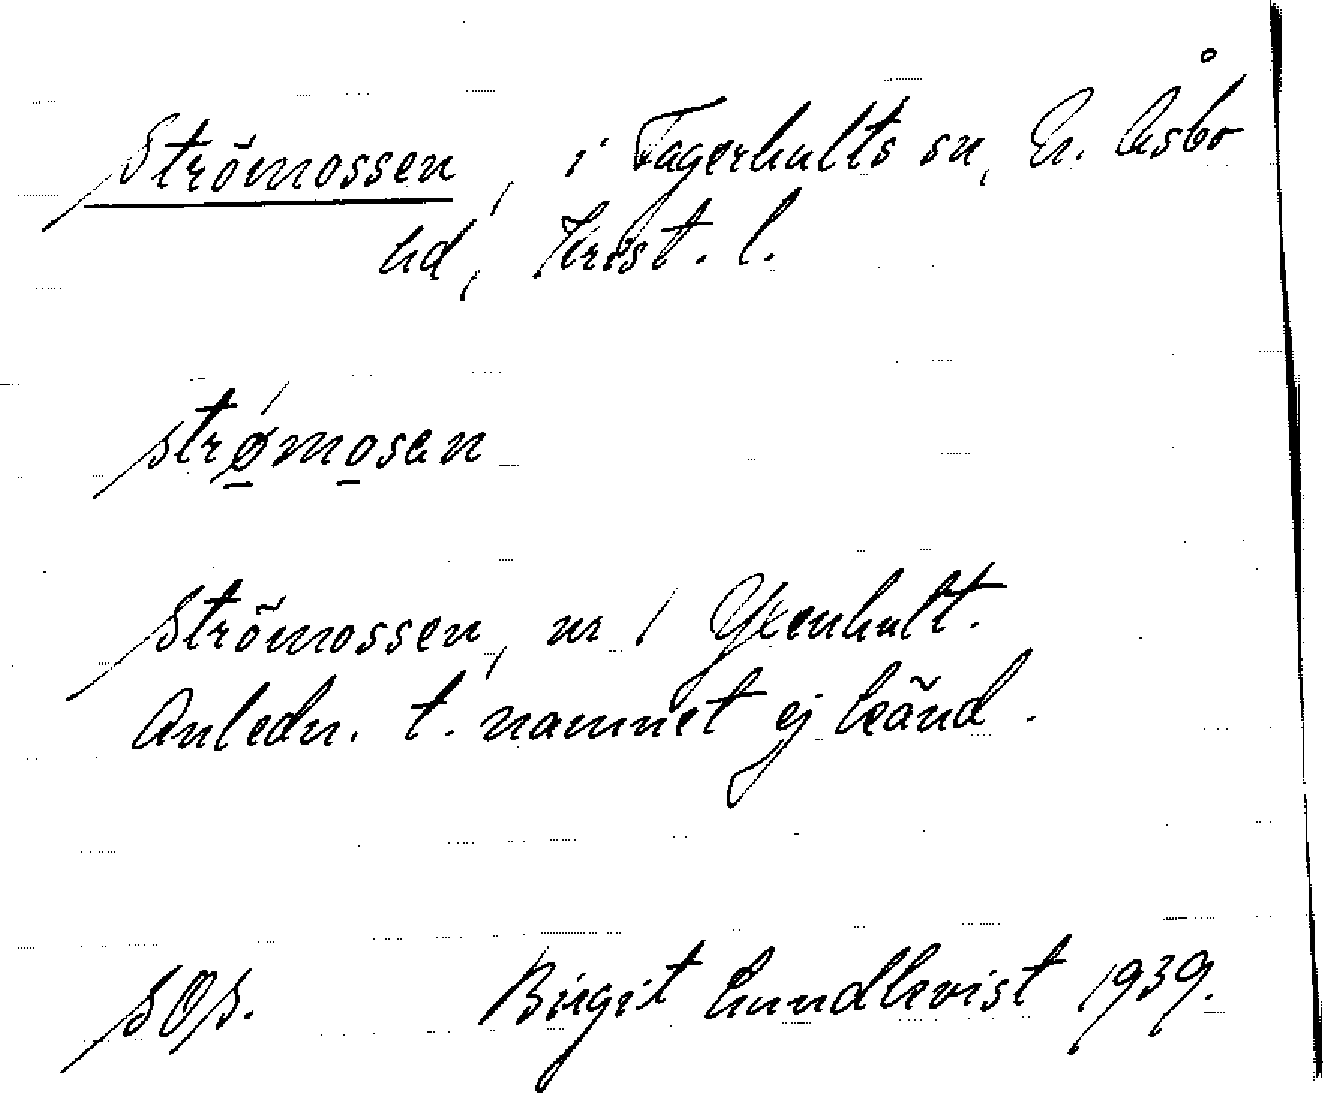 Strömossen, i Fagerhults sn, N. Åsbo
hd, Krist. l.
strø̱mo̱sen
Strömossen, nr 1 Yxenhult.
Anledn. t. namnet ej känd.
s o s.
Birgit Lundkvist 1939.